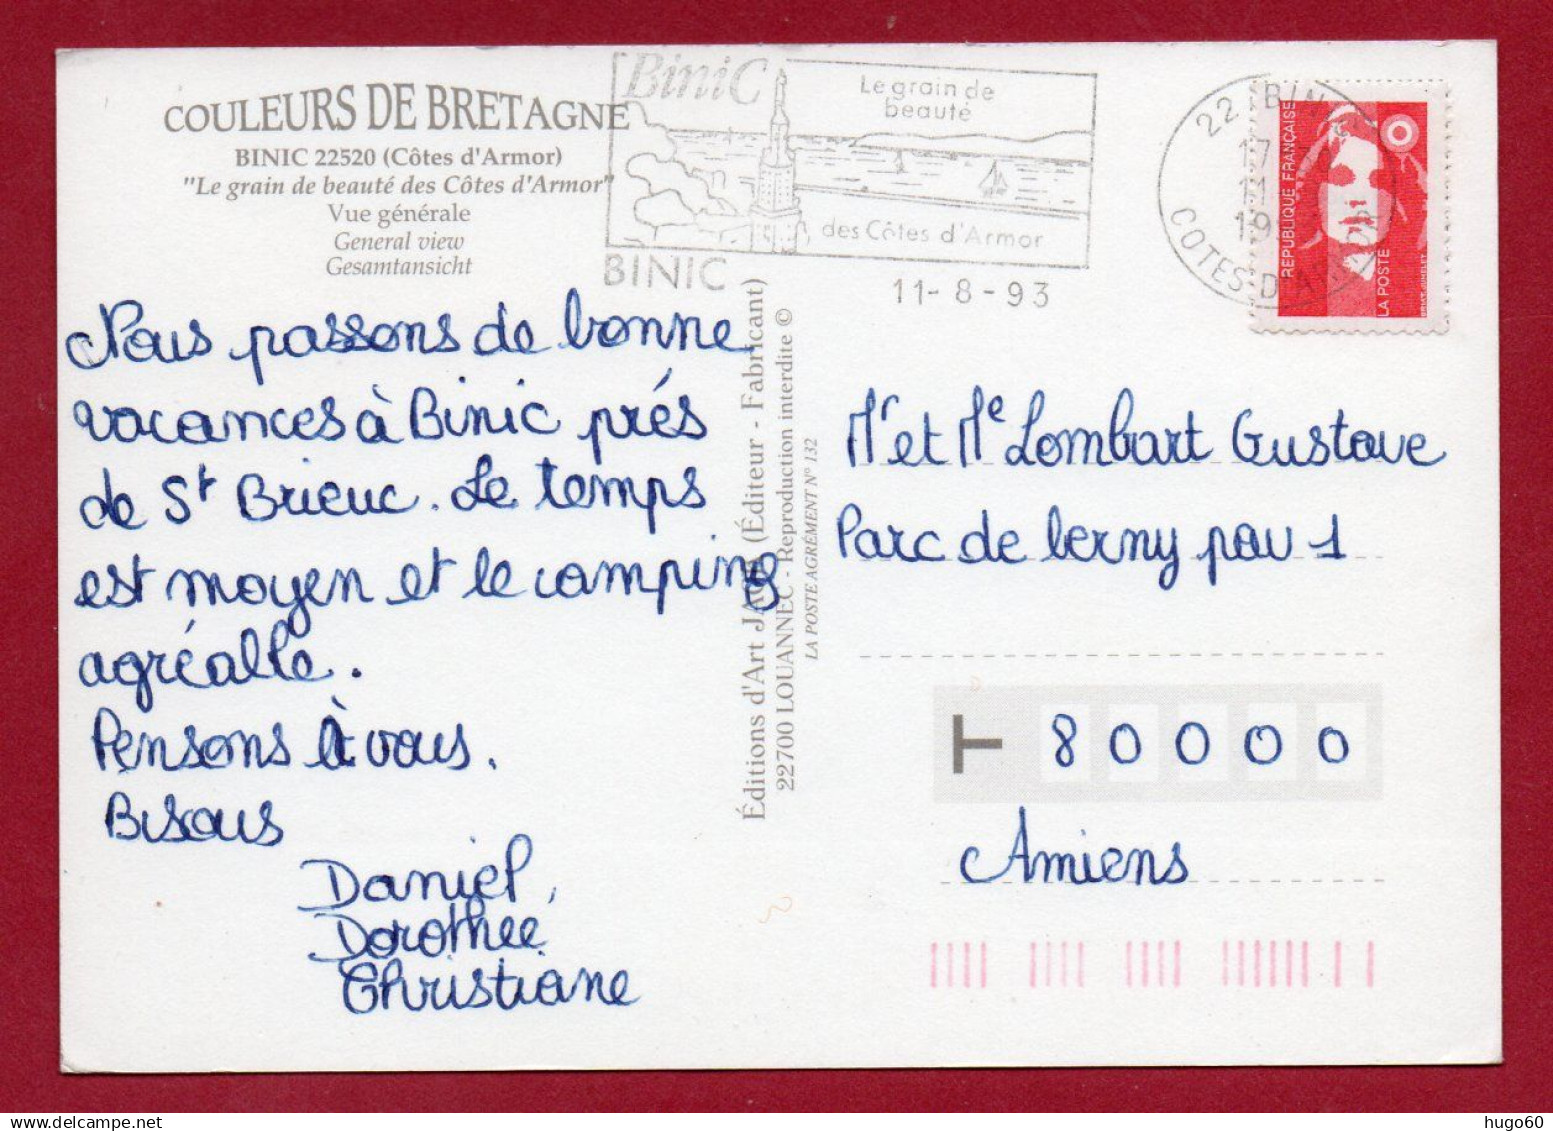 COULEURS DE BRETAGNE
BINIC 22520 (Côtes d'Armor)
"Le grain de beauté des Côtes d'Armor"
Vue générale
General view
Gesamtansicht
BiniC
Le grain de
beauté
des Côtes d'Armor
BINIC
11-8-93
22 BINIC
17
11
19
COTES-D'ARMOR
REPUBLIQUE FRANÇAISE
LA POSTE
Nous passons de bonne
vacances à Binic prés
de St Brieuc. Le temps
est moyen et le camping
agréable.
Pensons à vous.
Bisous
Daniel,
Dorothée
Christiane
Éditions d'Art (Éditeur - Fabricant)
22700 LOUANNEC - Reproduction interdite ©
LA POSTE AGRÉMENT N° 132
Mr et Me Lombart Gustave
Parc de berny pav 1
T 80000
Amiens
hugo60